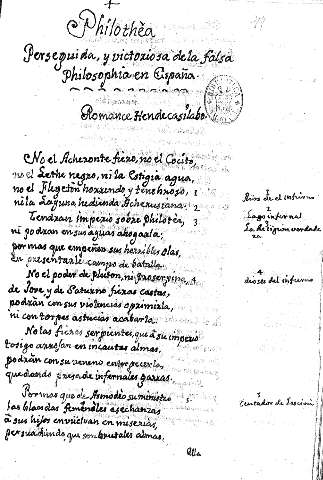 Philothea
Perseguida, y victoriosa de la falsa
Philosophia en España.
Romance Hendecasilabo.
No el Acheronte fiero, no el Cocito,
no el Lethe negro, ni la Estigia agua,
no el Flegeton horrendo y tenebroso, 1
ni la Laguna hedionda Acherusiana. 2
Tendran imperio sobre Philotea, 3
ni podran en sus aguas ahogarla;
por mas que empeñen sus horribles olas,
en presentarle campo de batalla.
No el poder de Pluton, ni Proserpina, 4
de Jove, y de Saturno fieras castas,
podràn con sus violencias oprimirla,
ni con torpes astucias acabarla.
No las fieras serpientes, que à su imperio
tosigo arrojan en incautas almas,
podràn con su veneno entorpecerla,
quedando presa de infernales garras.
Por mas que de Asmodeo suministre 5
las blandas asechanzas
à sus hijos envuelvan en miserias,
persuadiendo, que son brutales almas.
Ella
1
Rios de el infierno
2
Lago infernal
3
La Religion verdade
ra
4
dioses del infierno
5